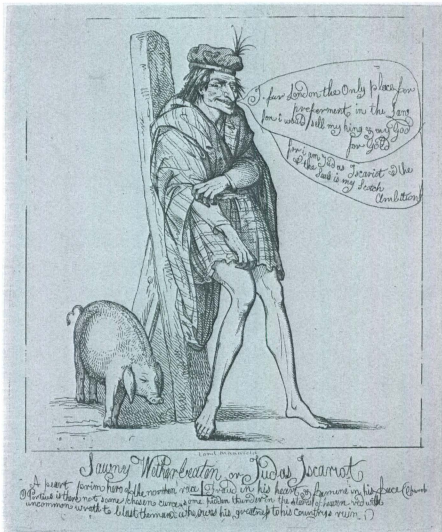 I. fur London the Only place for
preferment in the Land
for i woud sell my king & my God
for Gold
for i am Judas Iscariot & the
is my Scotch
Ambition
Sawney Wetherbeaton or Judas Iscariot
A peert prim hero of the northern race in his heart & famine in his face Church
Pontius is there not some chosen curse some hidden thunder in the stores of heaven red with
uncommon wrath to blast the man who owes his greatness to his Countrys ruin